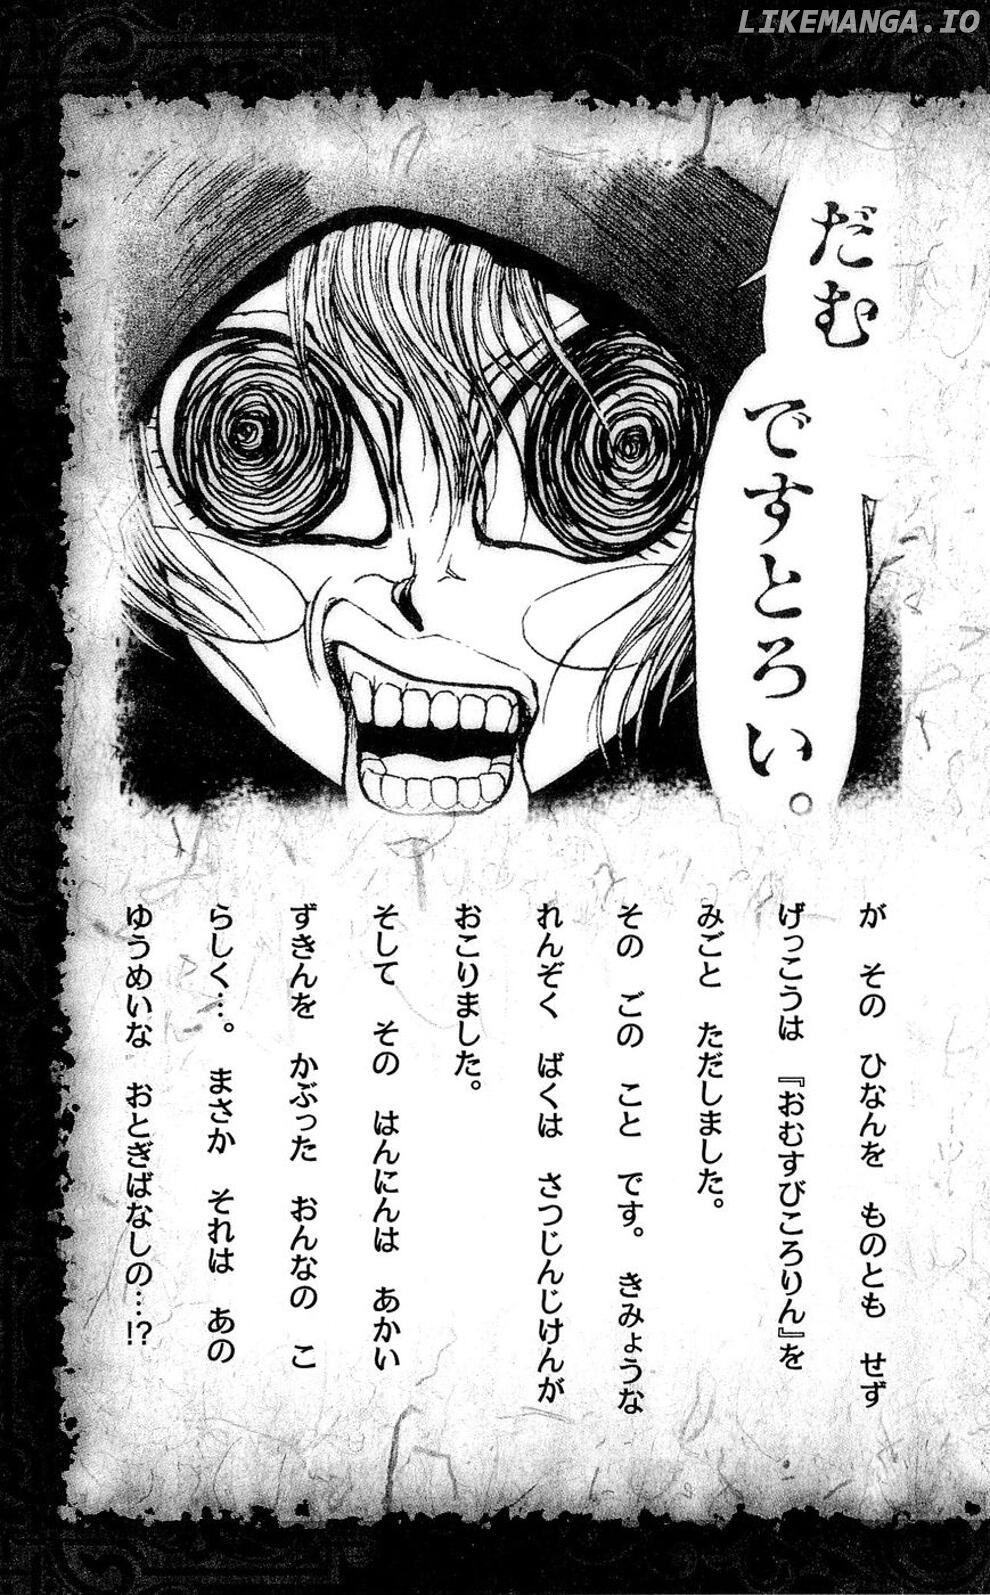 LIKEMANGA.IO
だむ
ですとろい。
が その ひなんを ものとも せず
げっこうは 『おむすびころりん』を
みごと ただしました。
その ごの こと です。 きみょうな
れんぞく ばくは さつじんじけんが
おこりました。
そして その はんにんは あかい
ずきんを かぶった おんなの こ
らしく…。 まさか それは あの
ゆうめいな おとぎばなしの…!?